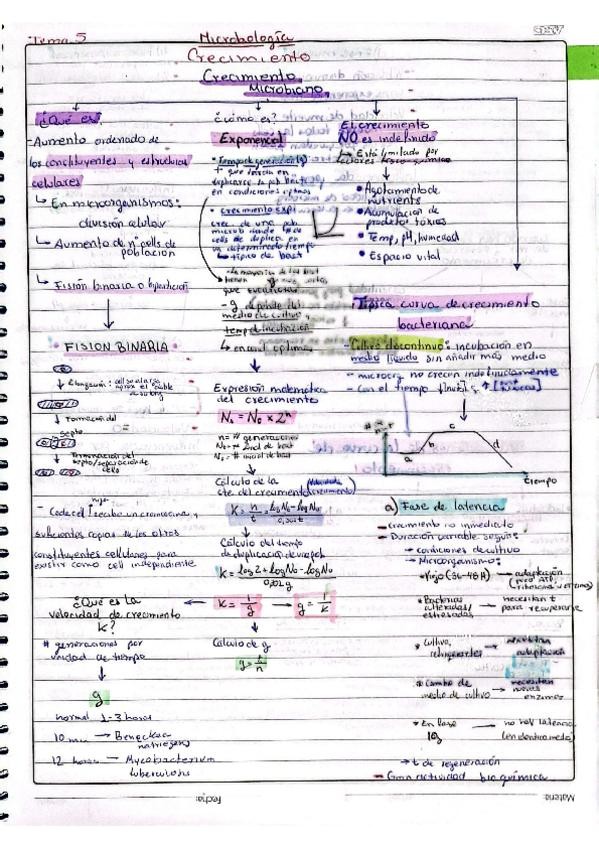 Tema 5
Microbiología
Crecimiento
Crecimiento
Microbiano
¿Qué es?
-Aumento ordenado de
los constituyentes y estructuras
celulares
↳ En microorganismos:
división celular
↳ Aumento de nº cells de
población
↳ Fisión binaria o bipartición
FISION BINARIA
↓ Elongación: cell se alarga
↓ Formación del
septo
↓ Terminación del
septo/separación de
cells
- Code cell hija recibe un cromosoma y
suficientes copias de los otros
constituyentes cellulares para
existir como cell independiente
¿Qué es la
velocidad de crecimiento
k?
# generaciones por
unidad de tiempo
g
normal 1-3 horas
10 min → Beneckea
natriegens
12 horas → Mycobacterium
tuberculosis
¿cómo es?
Exponencial
• Tiempo de generación (g)
en condiciones óptimas
• crecimiento exp
crec. de una pob.
micro donde # de
cells se duplica en
un determinado tiempo
↳ típico de bact
- g depende del
medio de cultivo
temp de incubación
↳ en cond óptimas
Expresión matemática
del crecimiento
Nt = No x 2ⁿ
n = # generaciones
Nt = # final de bact
No = # inicial de bact
Cálculo de la
cte. del crecimiento (velocidad crecimiento)
K = n/t = log Nt - log No / 0,301 t
Cálculo del tiempo
de duplicación de una pob
K = log 2 + log No - log No / 0,301 g
K = 1/g → g = 1/K
Cálculo de g
g = t/n
El crecimiento
NO es indefinido
↳ Está limitado por
factores físico-químicos
• Agotamiento de
nutrients
• Acumulación de
prodctos tóxicos
• Temp, pH, humedad
• Espacio vital
• Típica curva de crecimiento
bacteriana
- Cultivo discontinuo: incubación en
medio líquido sin añadir más medio
- microorg no crecen indefinidamente
- Con el tiempo
a
b
c
d
tiempo
a) Fase de latencia
- Crecimiento no inmediato
- Duración variable según:
→ condiciones de cultivo
→ Microorganismo:
* Viejo (36-48H) → adaptación
(prod ATP,
ribosomas y enzimas)
* Bacterias
alteradas/
estresadas → necesitan t
para recuperarse
* Cultivo,
refrigerantes → necesitan
adaptación
* Cambio de
medio de cultivo → necesitan
nuevas
enzimas
* En fase
log → no hay latencia
→ t de regeneración
- Gran actividad bioquímica
Fecha:
Materia